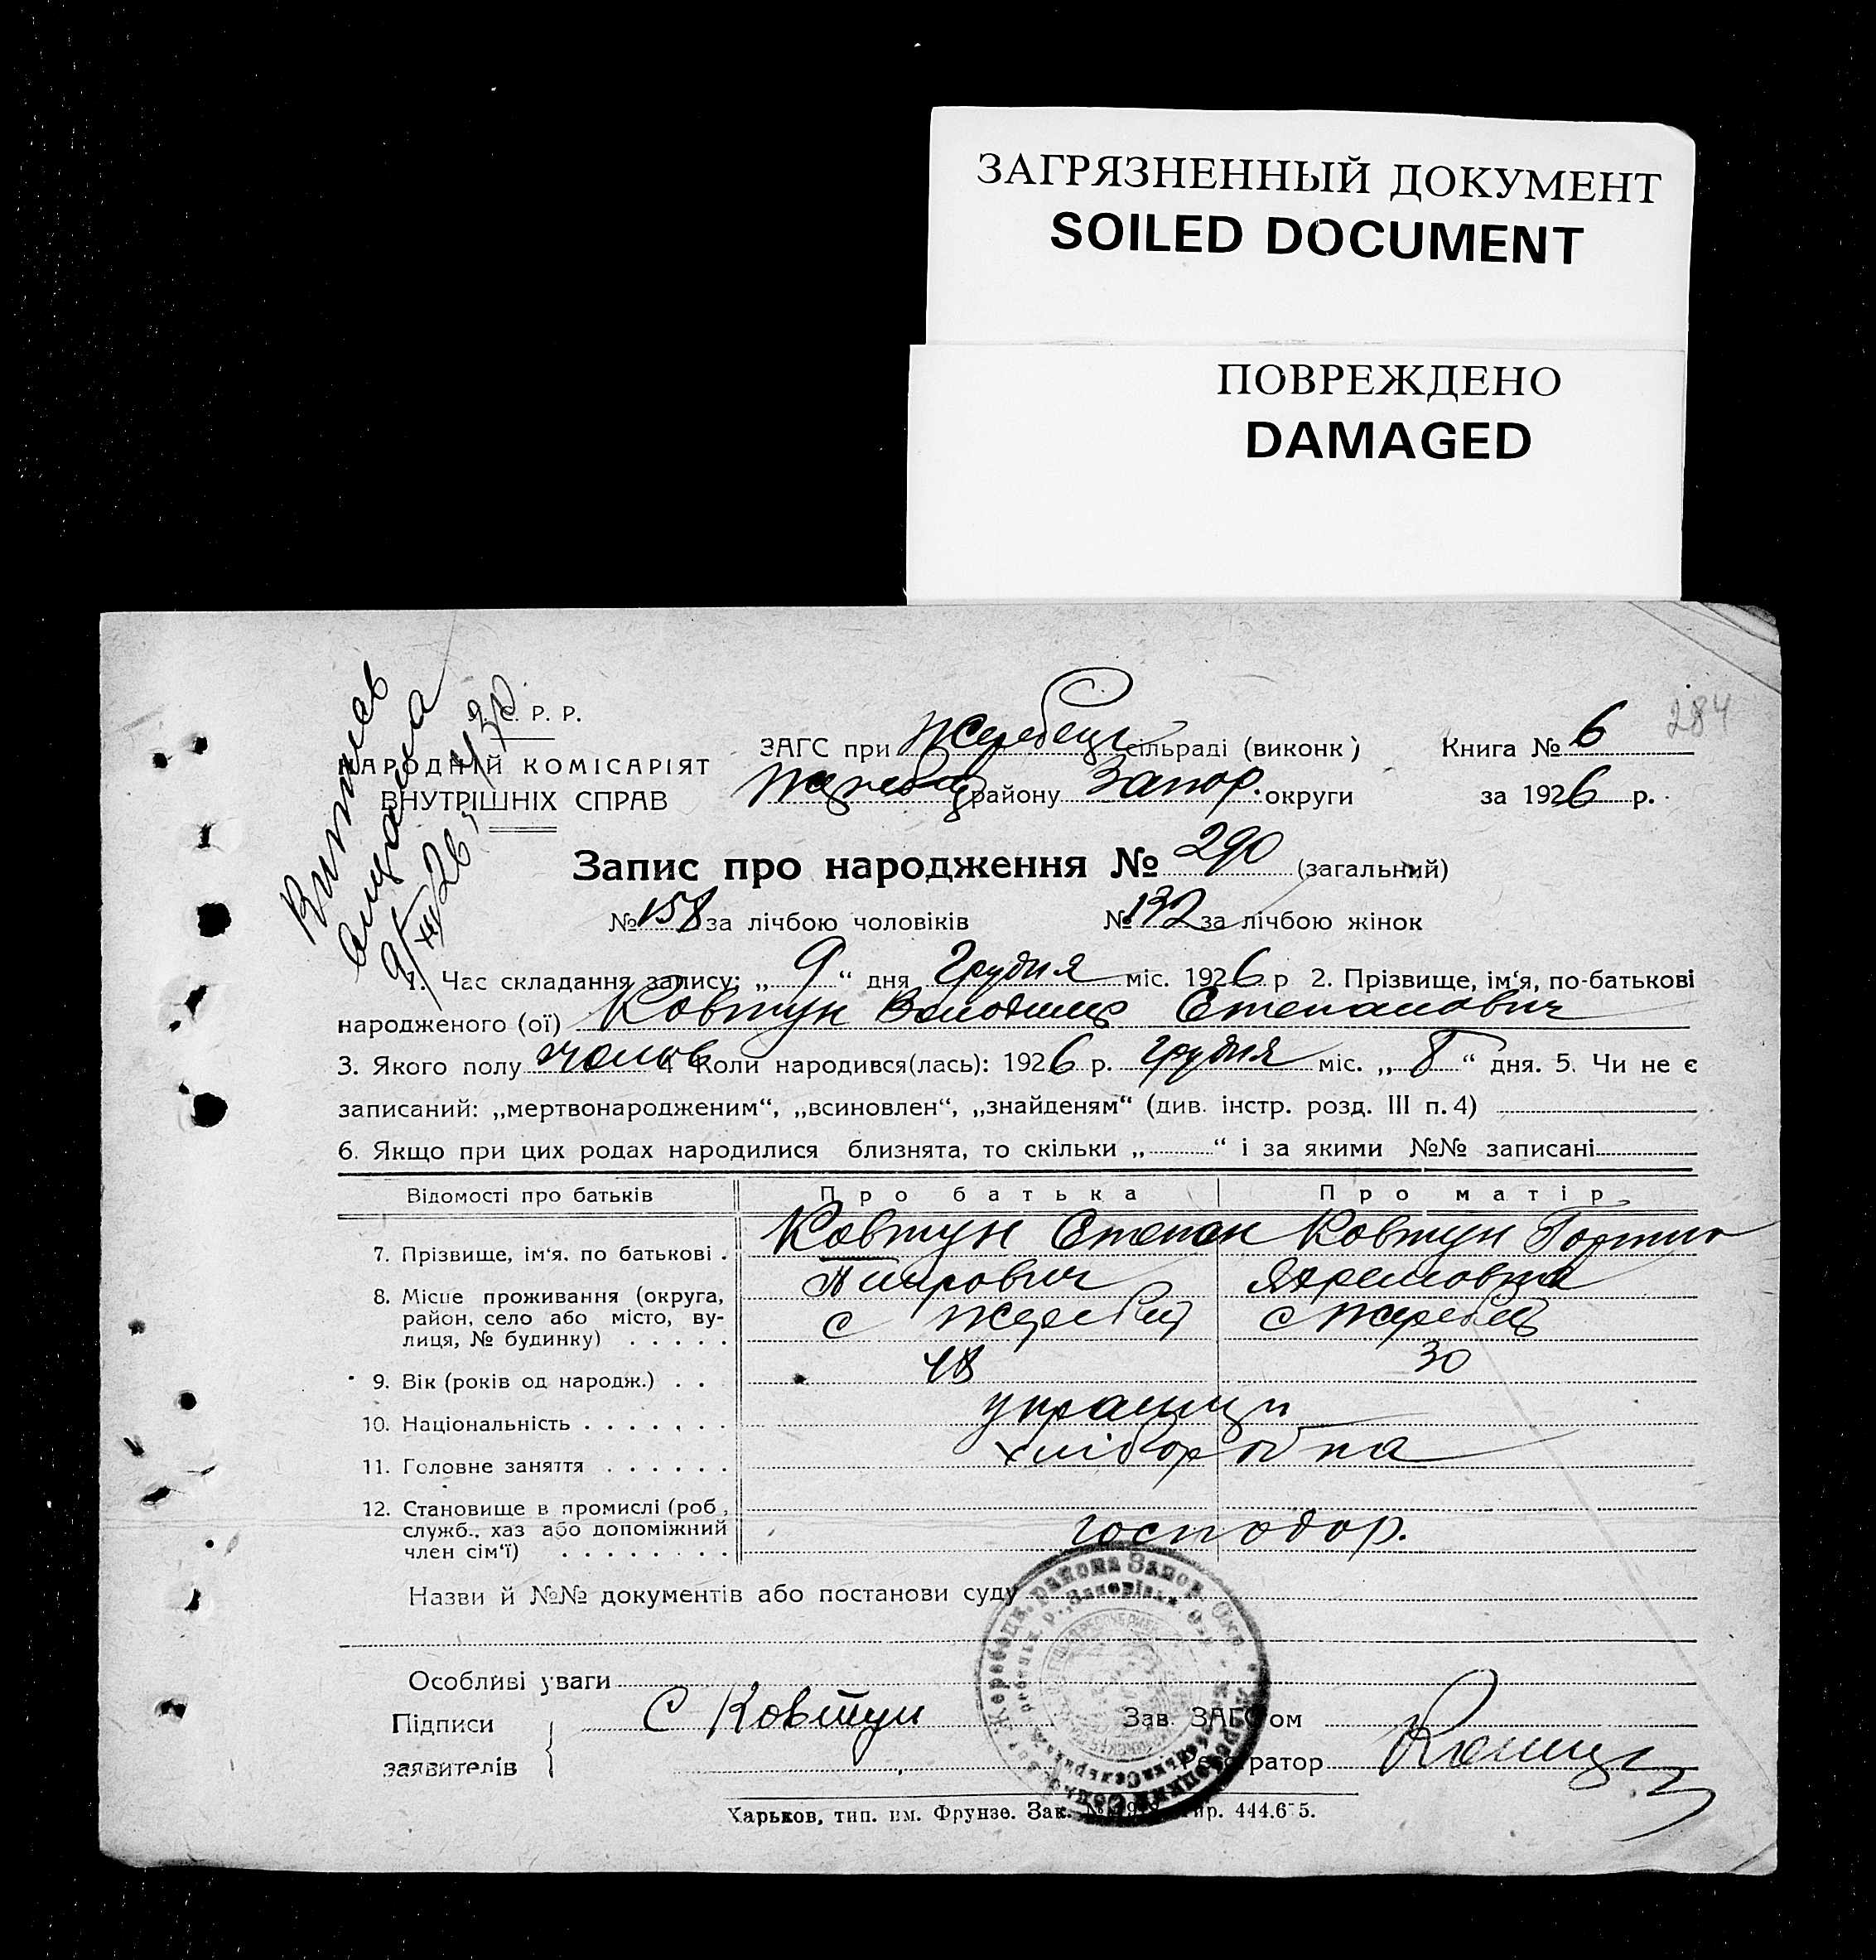 ЗАГРЯЗНЕННЫЙ ДОКУМЕНТ
SOILED DOCUMENT
ПОВРЕЖДЕНО
DAMAGED
284
С. Р. Р.
НАРОДНІЙ КОМІСАРІЯТ
ВНУТРІШНІХ СПРАВ
ЗАГС при Жеребец сільраді (виконк) Книга № 6
району Запор. округи за 1926 р.
Запис про народження № 290 (загальний)
№ 158 за лічбою чоловіків № 132 за лічбою жінок
1. Час складання запису: „ 9 “ дня Грудня міс. 1926 р 2. Прізвище, ім‘я, по-батькові
народженого (ої) Ковтун Володимир Степанович
3. Якого полу чолов 4 Коли народився(лась): 1926 р. грудня міс. „ 8 “ дня. 5. Чи не є
записаний: „мертвонародженим“, „всиновлен“, „знайденям“ (див. інстр. розд. III п. 4)
6. Якщо при цих родах народилися близнята, то скільки „ “ і за якими №№ записані
Відомості про батьків Про батька Про матір
7. Прізвище, ім‘я, по батькові . Ковтун Степан Ковтун
8. Місце проживання (округа,
район, село або місто, ву-
лиця, № будинку) . . . . . с Жеребец с Жеребец
9. Вік (років од народж.) . . 48 30
10. Національність . . . . . . . українци
11. Головне заняття . . . . . . хлібороби
12. Становище в промислі (роб.,
служб., хаз або допоміжний
член сім‘ї) . . . . . . . . господар.
Назви й №№ документів або постанови суду
Особливі уваги
Підписи
заявителів
С Ковтун
Зав. ЗАГС‘ом
Реєстратор
Харьков, тип. им. Фрунзе. Зак. №